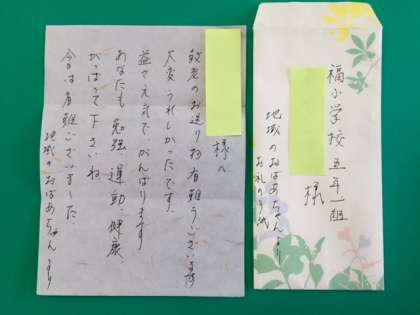 様へ
敬老のお送り物有難うございます
大変うれしかったです。
益々元気でがんばります
あなたも勉強 運動 健康、
がんばって下さいね
今日は有難うございました。
地域のおばあちゃんより
福小学校 五年一組
様
地域のおばあちゃんより
お礼の手紙